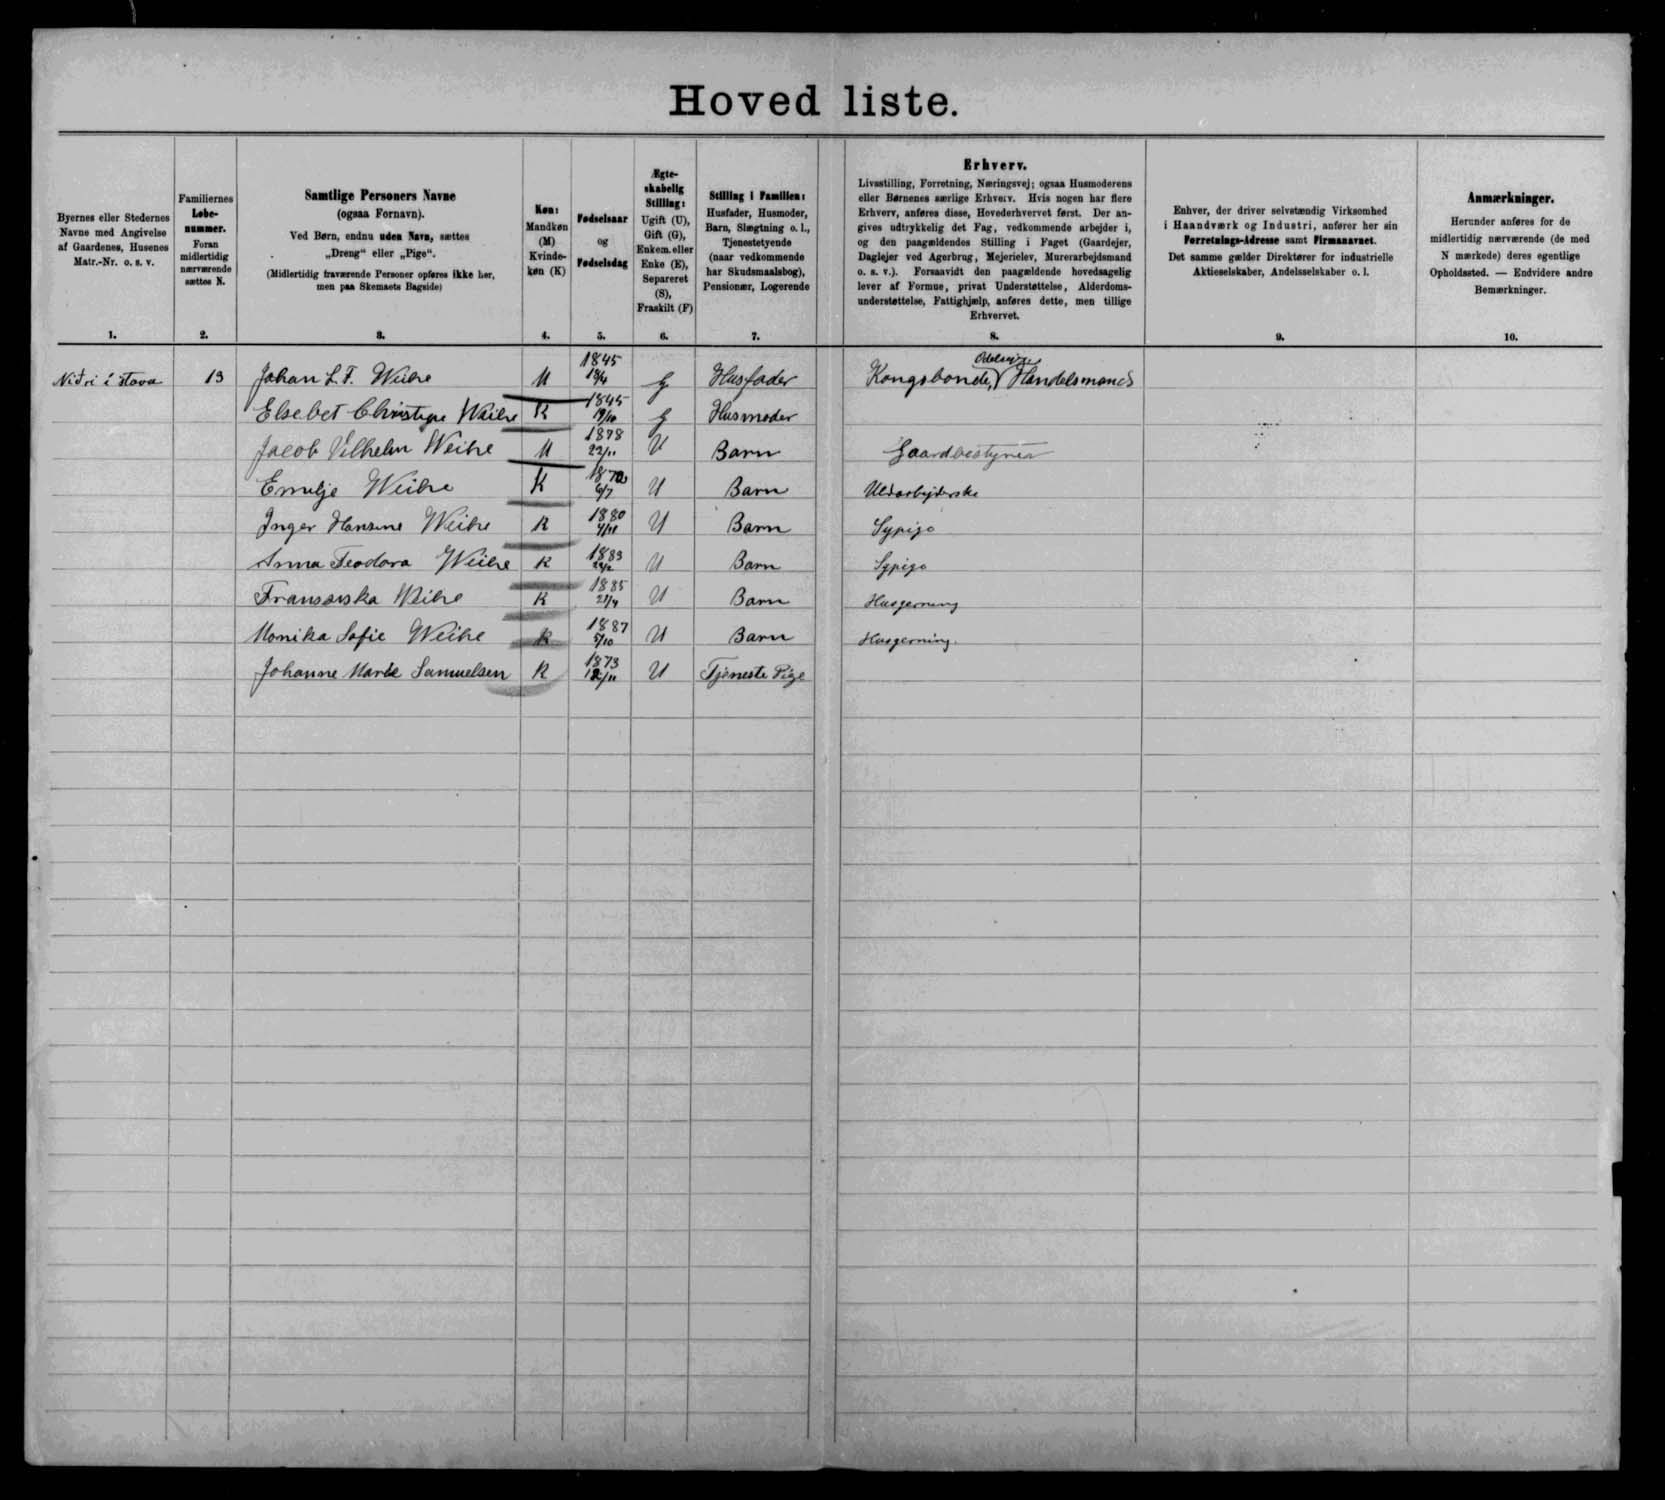 Hoved liste.
Byernes eller Stedernes
Navne med Angivelse
af Gaardenes, Husenes
Matr.-Nr. o. s. v.
1.
Familiernes
Løbe-
nummer.
Foran
midlertidig
nærværende
sættes N.
2.
Samtlige Personers Navne
(ogsaa Fornavn).
Ved Børn, endnu uden Navn, sættes
„Dreng“ eller „Pige“.
(Midlertidig fraværende Personer opføres ikke her,
men paa Skemaets Bagside)
3.
Køn:
Mandkøn
(M)
Kvinde-
køn (K)
4.
Fødselsaar
og
Fødselsdag
5.
Ægte-
skabelig
Stilling:
Ugift (U),
Gift (G),
Enkem. eller
Enke (E),
Separeret
(S),
Fraskilt (F)
6.
Stilling i Familien:
Husfader, Husmoder,
Barn, Slægtning o. l.,
Tjenestetyende
(naar vedkommende
har Skudsmaalsbog),
Pensionær, Logerende
7.
Erhverv.
Livsstilling, Forretning, Næringsvej; ogsaa Husmoderens
eller Børnenes særlige Erhverv. Hvis nogen har flere
Erhverv, anføres disse, Hovederhvervet først. Der an-
gives udtrykkelig det Fag, vedkommende arbejder i,
og den paagældendes Stilling i Faget (Gaardejer,
Daglejer ved Agerbrug, Mejerielev, Murerarbejdsmand
o. s. v.). Forsaavidt den paagældende hovedsagelig
lever af Formue, privat Understøttelse, Alderdoms-
understøttelse, Fattighjælp, anføres dette, men tillige
Erhvervet.
8.
Enhver, der driver selvstændig Virksomhed
i Haandværk og Industri, anfører her sin
Forretnings-Adresse samt Firmanavnet.
Det samme gælder Direktører for industrielle
Aktieselskaber, Andelsselskaber o. l.
9.
Anmærkninger.
Herunder anføres for de
midlertidig nærværende (de med
N mærkede) deres egentlige
Opholdssted. — Endvidere andre
Bemærkninger.
10.
Niðri í stova 13 Johan L. F. Weihe M 1845 G Husfader Kongsbonde, Handelsmand
Elsebet Christine Weihe K 1845 19/10 G Husmoder
Jacob Vilhelm Weihe M 1878 22/11 U Barn Gaardbestyrer
Emilje Weihe K 6/7 U Barn Uldarbejderske
Inger Hansine Weihe K 1880 U Barn Sypige
Anna Teodora Weihe K 1883 U Barn Sypige
Fransiska Weihe K 1885 U Barn Husgerning
Monika Sofie Weihe K 1887 5/10 U Barn Husgerning.
Johanne Marie Samuelsen K 1873 U Tjeneste Pige